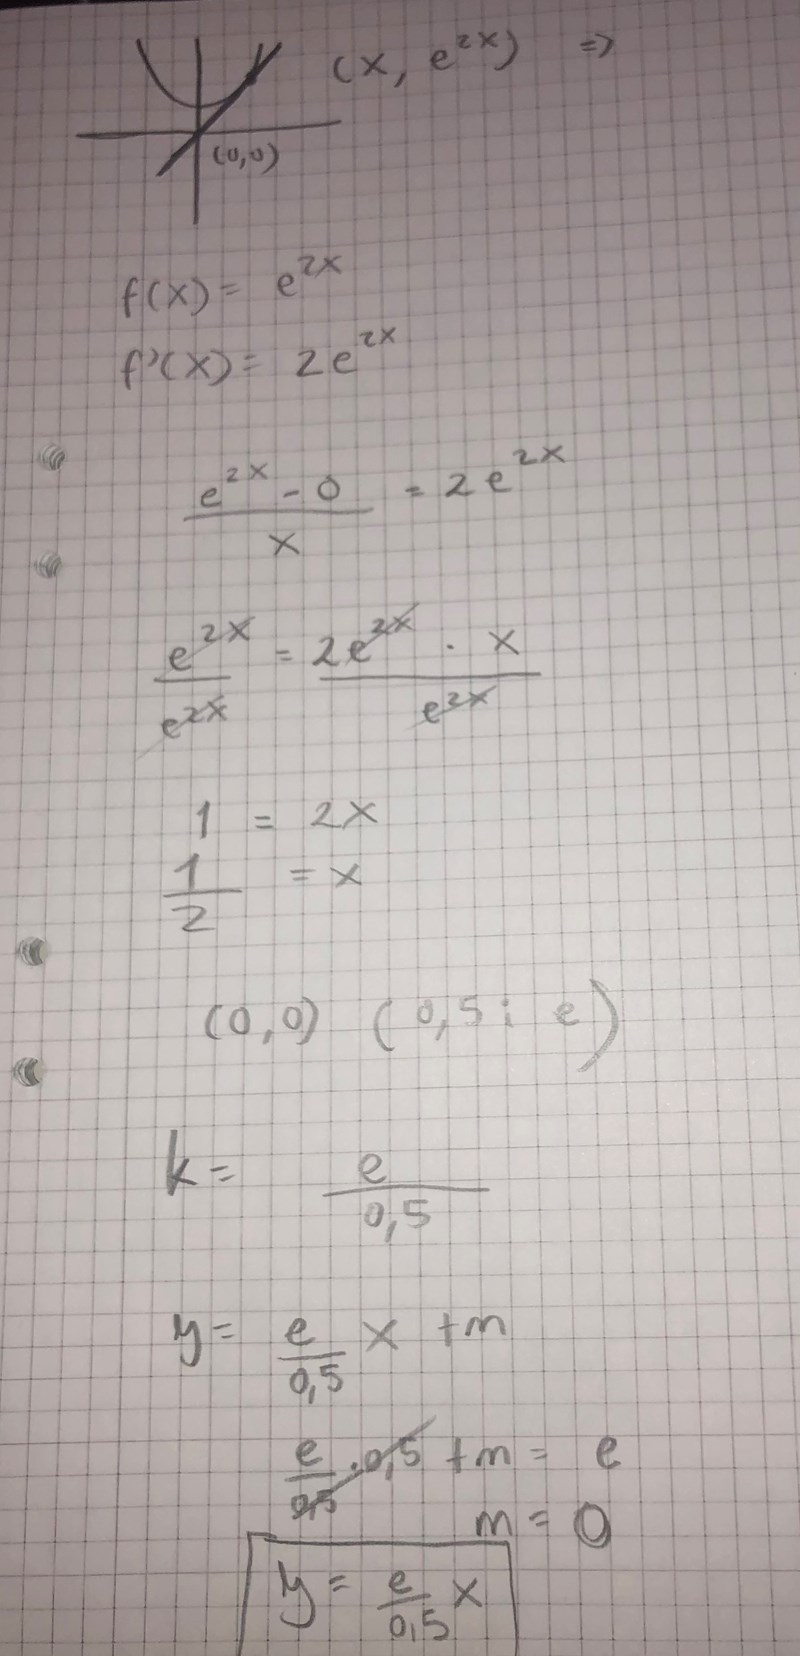 (x, e^{2x}) =>
(0,0)
f(x) = e^{2x}
f'(x) = 2e^{2x}
\frac{e^{2x} - 0}{x} = 2e^{2x}
\frac{e^{2x}}{e^{2x}} = \frac{2e^{2x} · x}{e^{2x}}
1 = 2x
\frac{1}{2} = x
(0,0) (0,5; e)
k = \frac{e}{0,5}
y = \frac{e}{0,5} x + m
\frac{e}{0,5} · 0,5 + m = e
m = 0
y = \frac{e}{0,5} x